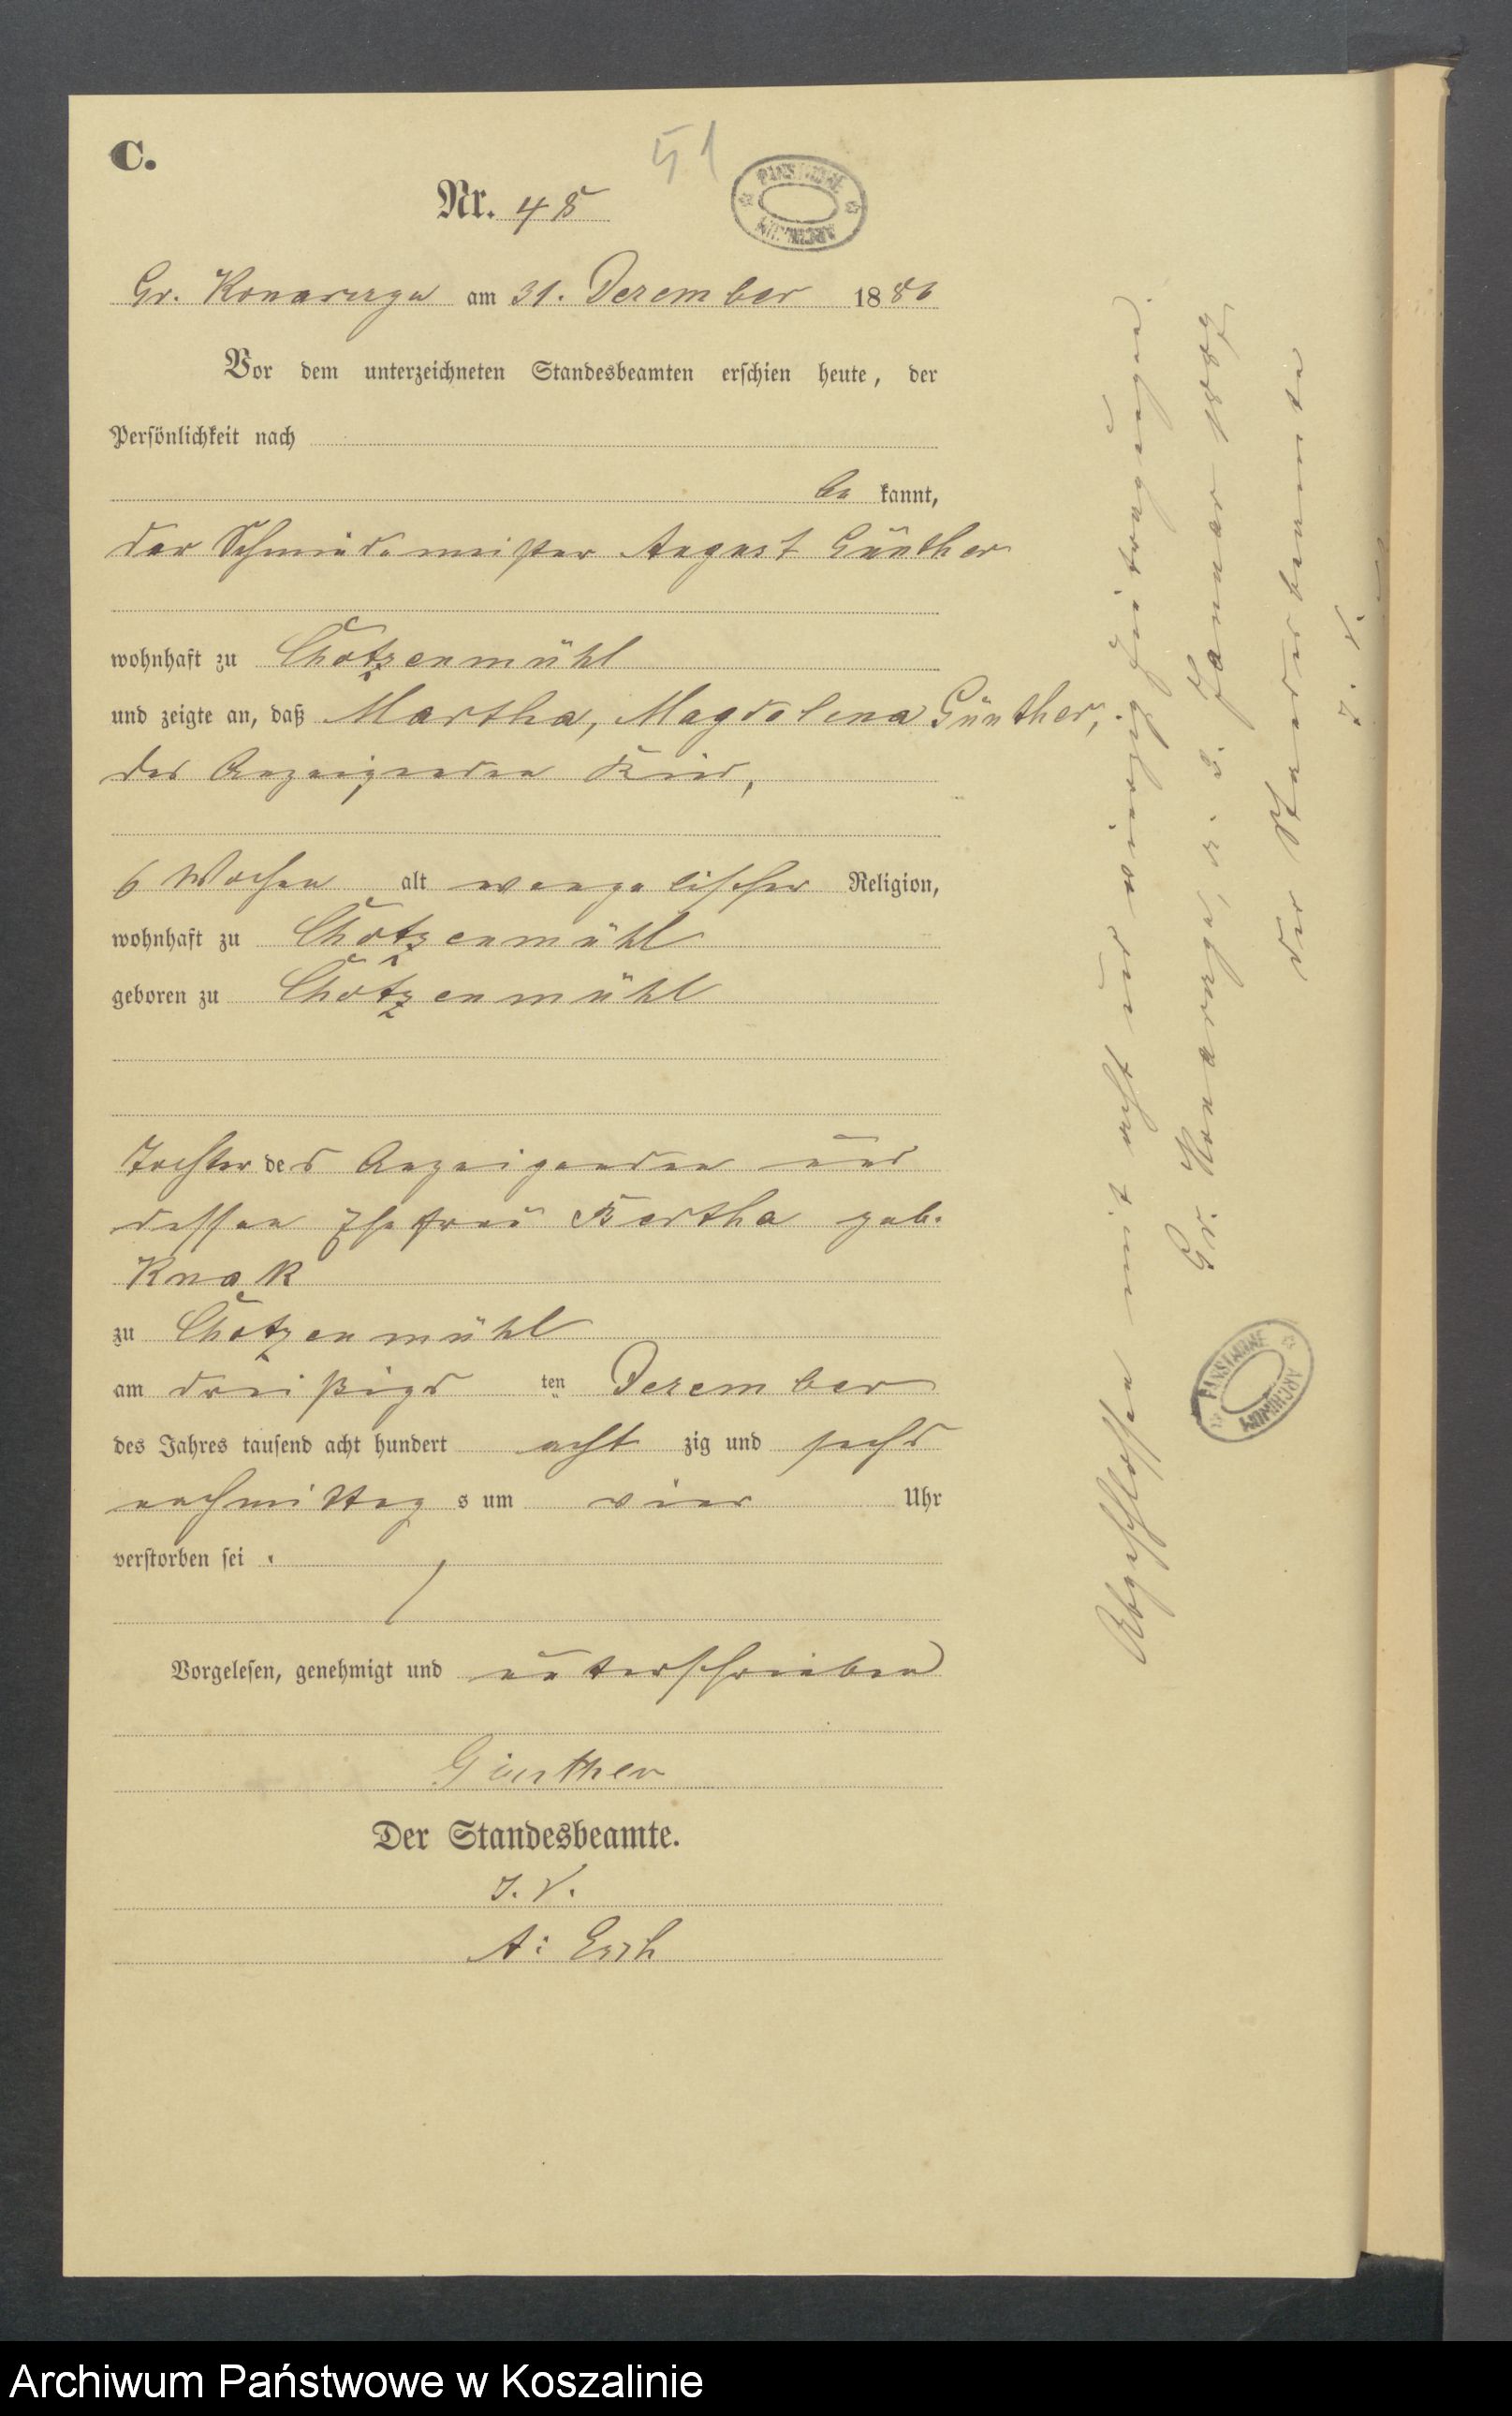 C.
51
Nr. 48
PANSTWOWE ARCHIWUM
Gr. Konarczyn am 31. Dezember 1886
Vor dem unterzeichneten Standesbeamten erschien heute, der
Persönlichkeit nach
be kannt,
der Schmiedemeister August Günther
wohnhaft zu Chotzenmühl
und zeigte an, daß Martha, Magdalena Günther,
des Anzeigenden Kind,
6 Wochen alt evangelischer Religion,
wohnhaft zu Chotzenmühl
geboren zu Chotzenmühl
Tochter des Anzeigenden und
dessen Ehefrau Bertha geb.
Knak
zu Chotzenmühl
am dreißigs ten Dezember
des Jahres tausend acht hundert acht zig und sechs
nachmittag s um vier Uhr
verstorben sei.
Vorgelesen, genehmigt und unterschrieben
Günther
Der Standesbeamte.
I. V.
A:
Abgeschlossen mit acht und vierzig Eintragungen.
Gr. Konarczyn, d. 3. Januar 1887
der Standesbeamte
I. V.
PANSTWOWE ARCHIWUM
Archiwum Państwowe w Koszalinie